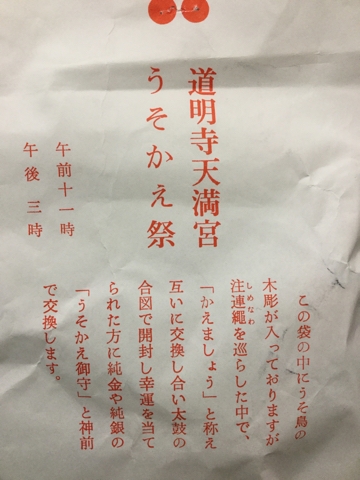 道明寺天満宮
うそかえ祭
午前十一時
午後三時
この袋の中にうそ鳥の
木彫が入っておりますが
しめなわ
注連繩を巡らした中で、
「かえましょう」と称え
互いに交換し合い太鼓の
合図で開封し幸運を当て
られた方に純金や純銀の
「うそかえ御守」と神前
で交換します。